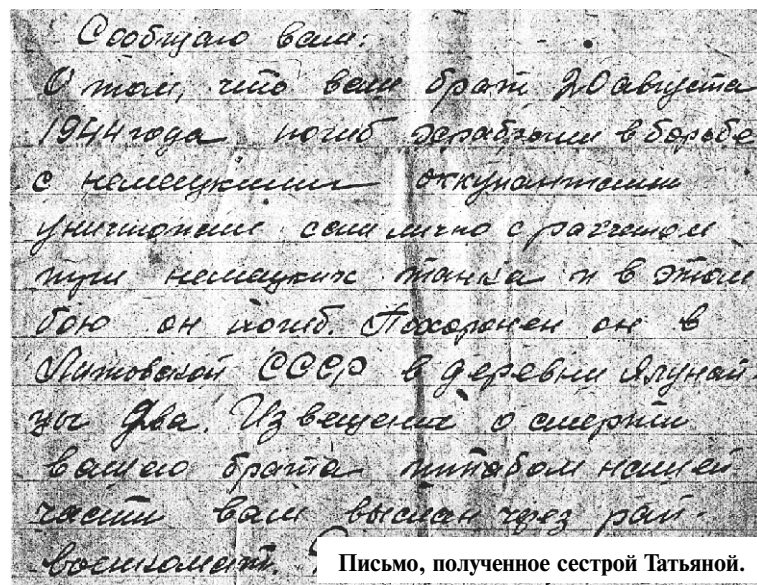 Сообщаю вам:
О том, что ваш брат 20 августа
1944 года погиб храбрым в борьбе
с немецкими оккупантами
уничтожил сам лично с расчетом
три немецких танка и в этом
бою он погиб. Похоронен он в
Литовской СССР в деревни Ялунай-
цы Два. Извещения о смерти
вашего брата штабом нашей
части вам выслан через рай-
военкомат.
Письмо, полученное сестрой Татьяной.